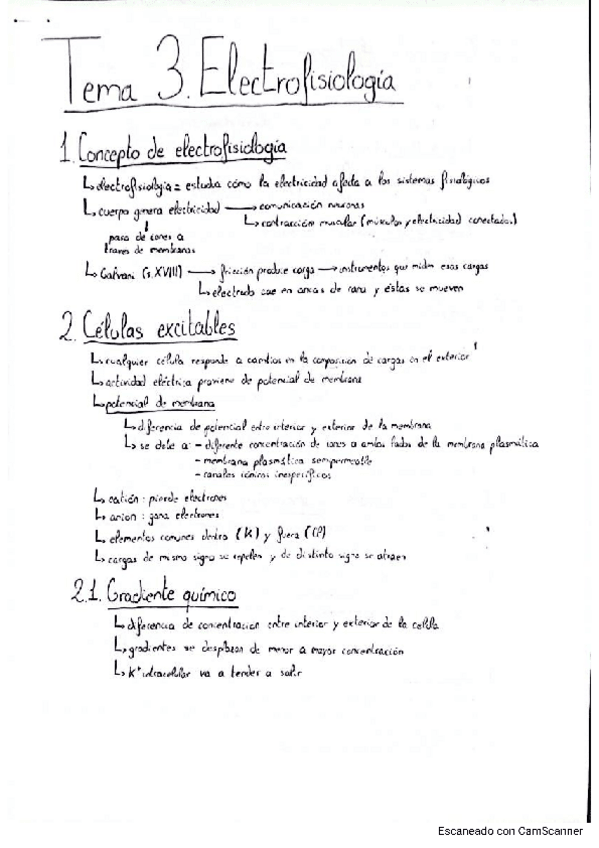 Tema 3. Electrofisiología
1. Concepto de electrofisiología
↳ electrofisiología = estudia cómo la electricidad afecta a los sistemas fisiológicos
↳ cuerpo genera electricidad → comunicación neuronas
↳ contracción muscular (músculos y electricidad conectados)
↓
paso de iones a
través de membranas
↳ Galvani (s.XVIII) → fricción produce carga → instrumentos que miden esas cargas
↳ electrodo cae en ancas de rana y éstas se mueven
2. Células excitables
↳ cualquier célula responde a cambios en la composición de cargas en el exterior
↳ actividad eléctrica proviene de potencial de membrana
↳ potencial de membrana
↳ diferencia de potencial entre interior y exterior de la membrana
↳ se debe a: - diferente concentración de iones a ambos lados de la membrana plasmática
- membrana plasmática semipermeable
- canales iónicos inespecíficos
↳ catión: pierde electrones
↳ anion: gana electrones
↳ elementos comunes dentro (K) y fuera
↳ cargas de mismo signo se repelen y de distinto signo se atraen
2.1. Gradiente químico
↳ diferencia de concentracion entre interior y exterior de la celula
↳ gradientes se desplazan de menor a mayor concentración
↳ K⁺ intracelular va a tender a salir
Escaneado con CamScanner